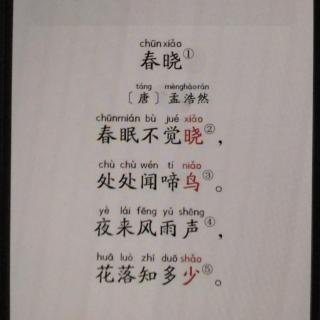 chūn xiǎo
春晓①
táng mènghàorán
〔唐〕孟浩然
chūnmián bù jué xiǎo
春眠不觉晓②，
chù chù wén tí niǎo
处处闻啼鸟③。
yè lái fēng yǔ shēng
夜来风雨声④，
huā luò zhī duō shǎo
花落知多少⑤。